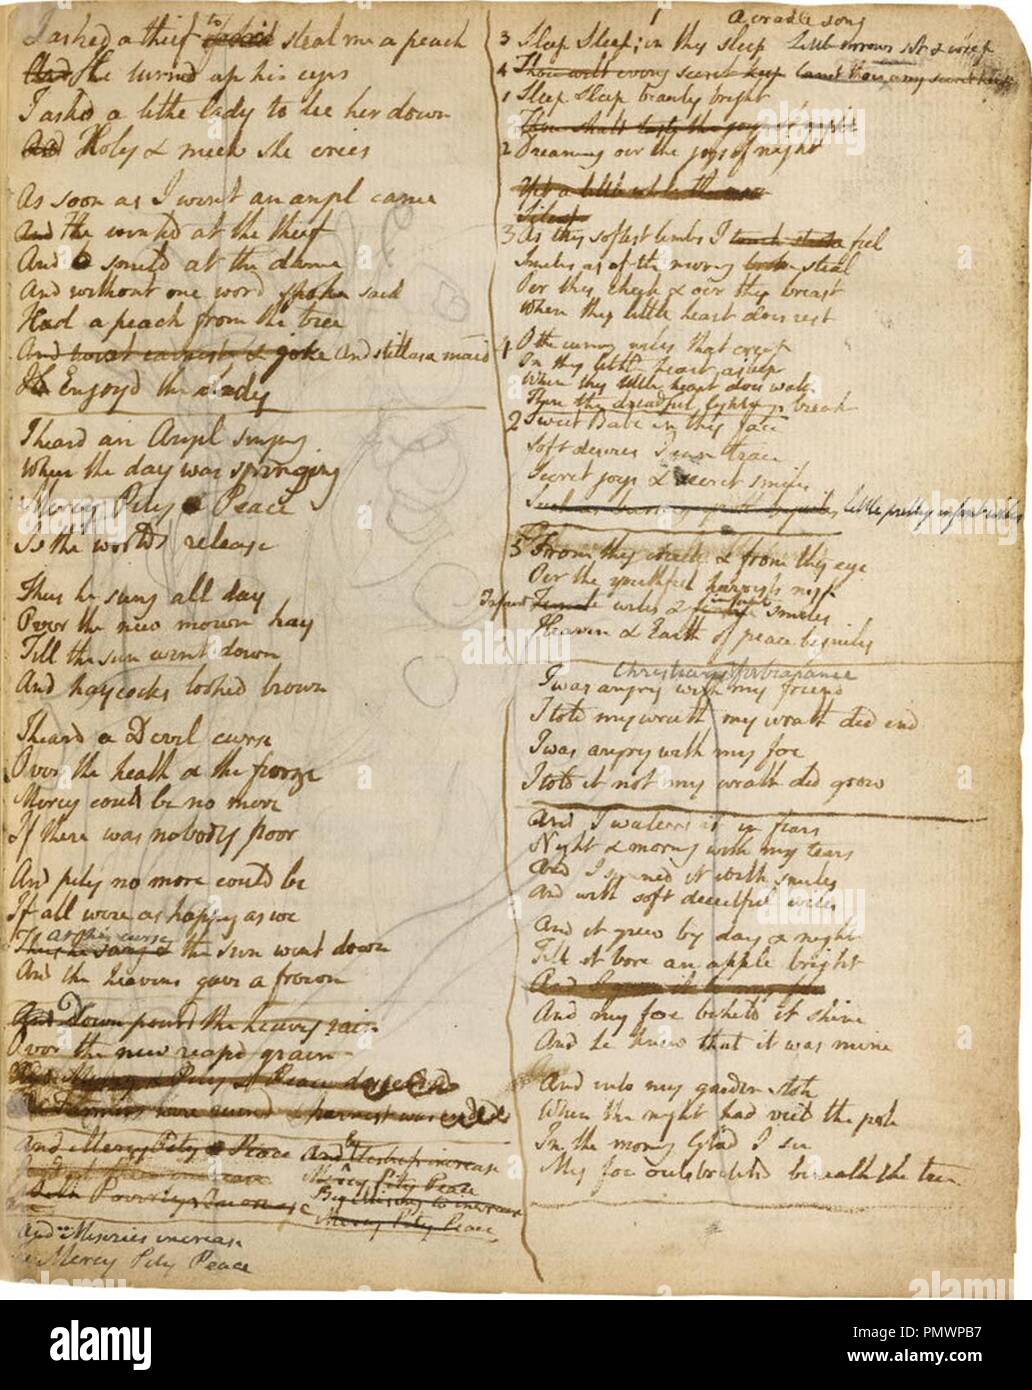 I asked a thief to steal me a peach
And He turned up his eyes
I askd a lithe lady to lie her down
And Holy & meek she cries
As soon as I went an angel came
And He winkd at the thief
And smild at the dame
And without one word spoke said
Had a peach from the tree
And twixt earnest & joke And still as a maid
Enjoyd the lady
I heard an Angel singing
When the day was springing
Mercy Pity Peace
Is the worlds release
Thus he sung all day
Over the new mown hay
Till the sun went down
And haycocks looked brown
I heard a Devil curse
Over the heath & the furze
Mercy could be no more
If there was nobody poor
And pity no more could be
If all were as happy as we
At his curse
Thus he sang & the sun went down
And the heavens gave a frown
And Down pourd the heavy rain
Over the new reapd grain
And Mercy & Pity & Peace descend
The Farmers were ruind & harvest was ended
And Mercy Pity Peace
And by increase
Mercy Pity Peace
Both Poverty & Increase
By Misery to increase
Mercy Pity Peace
And Miseries increase
Mercy Pity Peace
1 A cradle song
3 Sleep Sleep; in thy sleep Little sorrows sit & weep
4 Thou wilt every secret keep Canst thou any secret keep
1 Sleep Sleep beauty bright
Thou shalt taste the joys of night
2 Dreaming oer the joys of night
Yet a little while the moon
Silent
3 As thy softest limbs I touch stroke feel
Smiles as of the morning broke steal
Oer thy cheek & oer thy breast
Where thy little heart does rest
4 O the cunning wiles that creep
In thy little heart asleep
When thy little heart does wake
Then the dreadful lightnings break
2 Sweet Babe in thy face
Soft desires I can trace
Secret joys & secret smiles
Such as burning youth beguiles little pretty infant wiles
5 From thy cheek & from thy eye
Oer the youthful harvests nigh
Infant Female wiles & infant smiles
Heaven & Earth of peace beguiles
Christian Forbearance
I was angry with my friend
I told my wrath my wrath did end
I was angry with my foe
I told it not my wrath did grow
And I waterd it in fears
Night & morning with my tears
And I sunned it with smiles
And with soft deceitful wiles
And it grew by day & night
Till it bore an apple bright
And I gave it to my foe
And my foe beheld it shine
And he knew that it was mine
And into my garden stole
When the night had veild the pole
In the morning Glad I see
My foe outstretchd beneath the tree
alamy
Image ID: PMWPB7
www.alamy.com